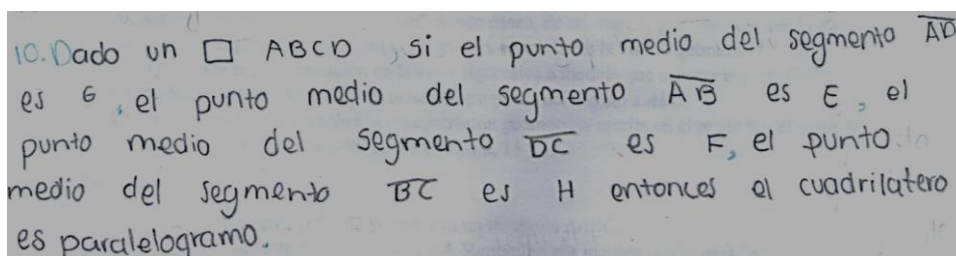 10. Dado un □ ABCD, si el punto medio del segmento A̅D̅
es G, el punto medio del segmento A̅B̅ es E, el
punto medio del segmento D̅C̅ es F, el punto
medio del segmento B̅C̅ es H entonces el cuadrilatero
es paralelogramo.